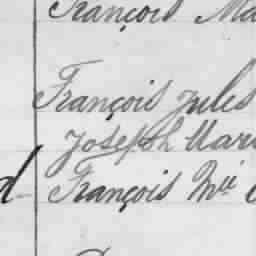 François Ma
François Jules
Joseph Mari
d François Mie